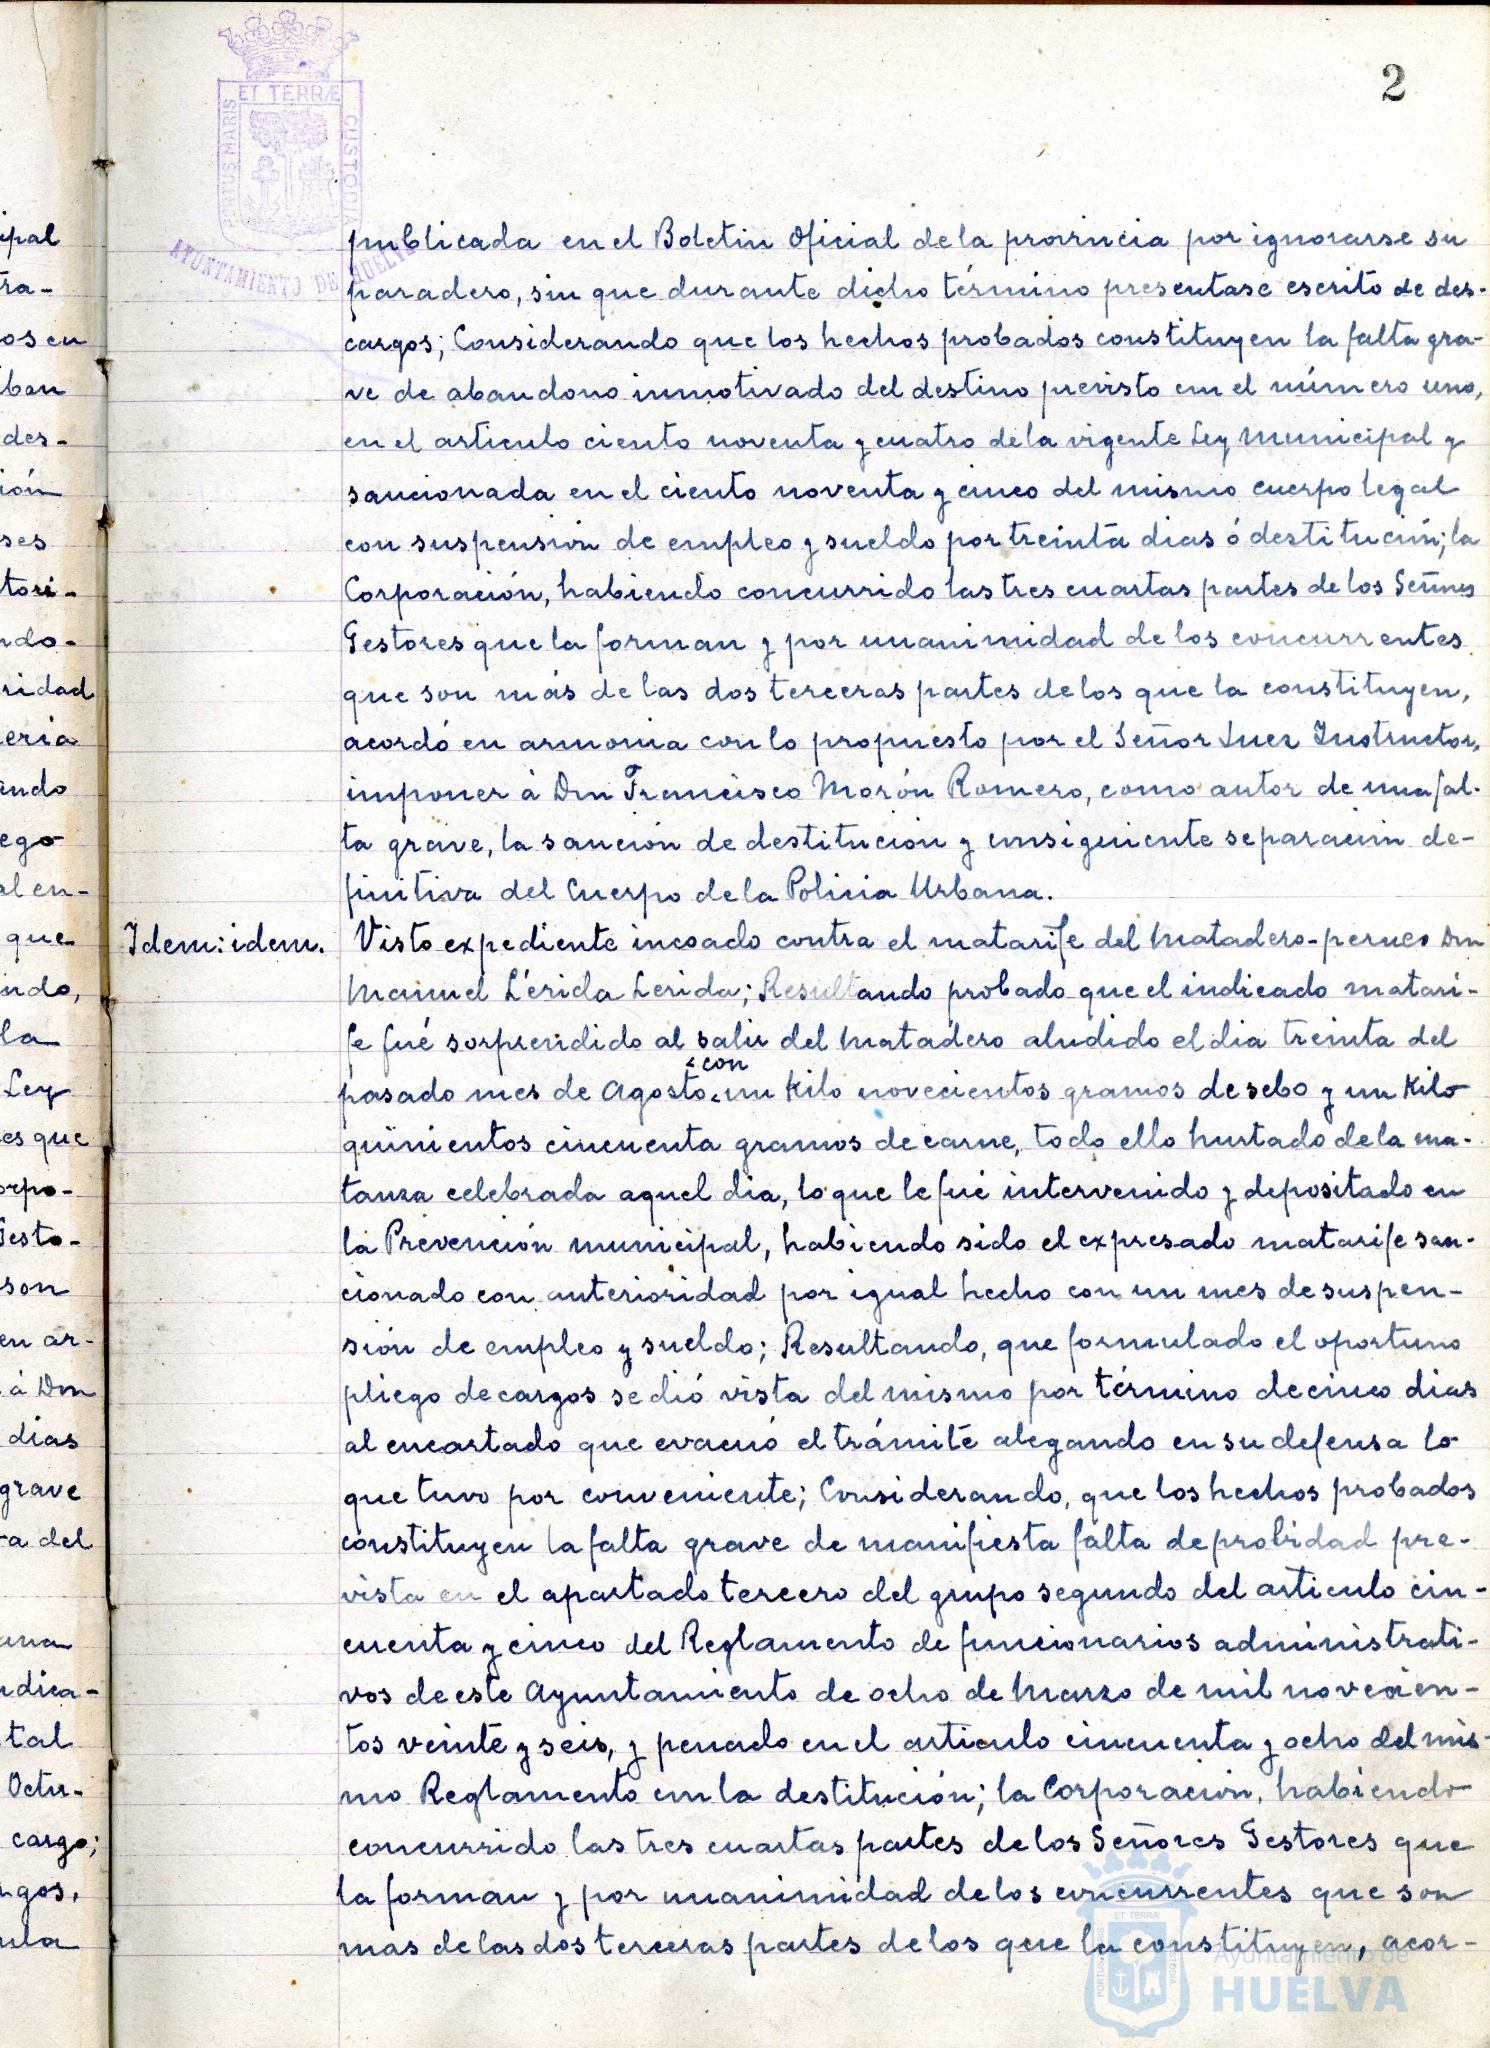 2
PORTUS MARIS ET TERRÆ CUSTODIA
AYUNTAMIENTO DE HUELVA
publicada en el Boletin Oficial de la provincia por ignorarse su
paradero, sin que durante dicho término presentase escrito de des-
cargos; Considerando que los hechos probados constituyen la falta gra-
ve de abandono inmotivado del destino previsto em el número uno,
en el articulo ciento noventa y cuatro de la vigente Ley Municipal y
sancionada en el ciento noventa y cinco del mismo cuerpo legal
con suspensión de empleo y sueldo por treinta dias ó destitución; la
Corporación, habiendo concurrido las tres cuartas partes de los Señores
Gestores que la forman y por unanimidad de los concurrentes
que son más de las dos terceras partes de los que la constituyen,
acordó en armonia con lo propuesto por el Señor Juez Instructor,
imponer à Don Francisco Morón Romero, como autor de una fal-
ta grave, la sanción de destitución y consiguiente separación de-
finitiva del Cuerpo de la Policia Urbana.
Idem: idem. Visto expediente incoado contra el matarife del Matadero-perneo Don
Manuel Lérida Lerida; Resultando probado que el indicado matari-
fe fué sorprendido al salir del Matadero aludido el dia treinta del
con
pasado mes de Agosto un Kilo novecientos gramos de sebo y un Kilo
quinientos cincuenta gramos de carne, todo ello hurtado de la ma-
tanza celebrada aquel dia, lo que le fué intervenido y depositado en
la Prevención municipal, habiendo sido el expresado matarife san-
cionado con anterioridad por igual hecho con un mes de suspen-
sión de empleo y sueldo; Resultando, que formulado el oportuno
pliego de cargos se dió vista del mismo por término de cinco dias
al encartado que evacuó el trámite alegando en su defensa lo
que tuvo por conveniente; Considerando, que los hechos probados
constituyen la falta grave de manifiesta falta de probidad pre-
vista en el apartado tercero del grupo segundo del articulo cin-
cuenta y cinco del Reglamento de funcionarios administrati-
vos de este Ayuntamiento de ocho de Marzo de mil novecien-
tos veinte y seis, y penado en el articulo cincuenta y ocho del mis-
mo Reglamento con la destitución; la Corporación, habiendo
concurrido las tres cuartas partes de los Señores Gestores que
la forman y por unanimidad de los concurrentes que son
mas de las dos terceras partes de los que la constituyen, acor-
Ayuntamiento de
HUELVA